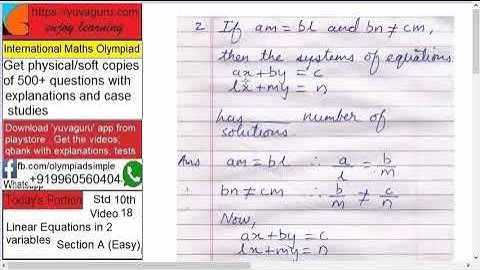 https://yuvaguru.com
enjoy learning
International Maths Olympiad
Get physical/soft copies
of 500+ questions with
explanations and case
studies
Download 'yuvaguru' app from
playstore Get the videos,
qbank with explanations, tests
fb.com/olympiadsimple
Whatsapp
+919960560404
Today's Portion
Std 10th
Video 18
Linear Equations in 2
variables
Section A (Easy)
2 If am = bl and bn ≠ cm,
then the systems of equations
ax+by = c
lx+my = n
has ___ number of
solutions.
Ans am = bl ∴ a/l = b/m
bn ≠ cm ∴ b/m ≠ c/n
Now,
ax+by = c
lx+my = n